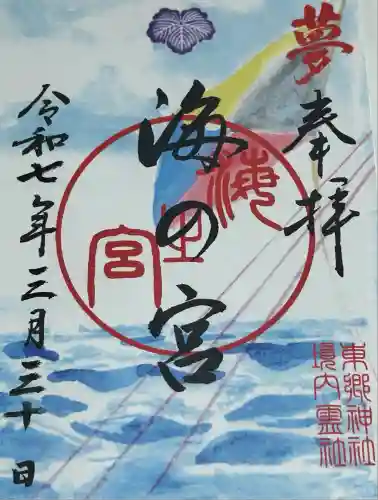 夢
奉拝
海の宮
海里宮
令和七年三月三十日
東郷神社
境内霊社